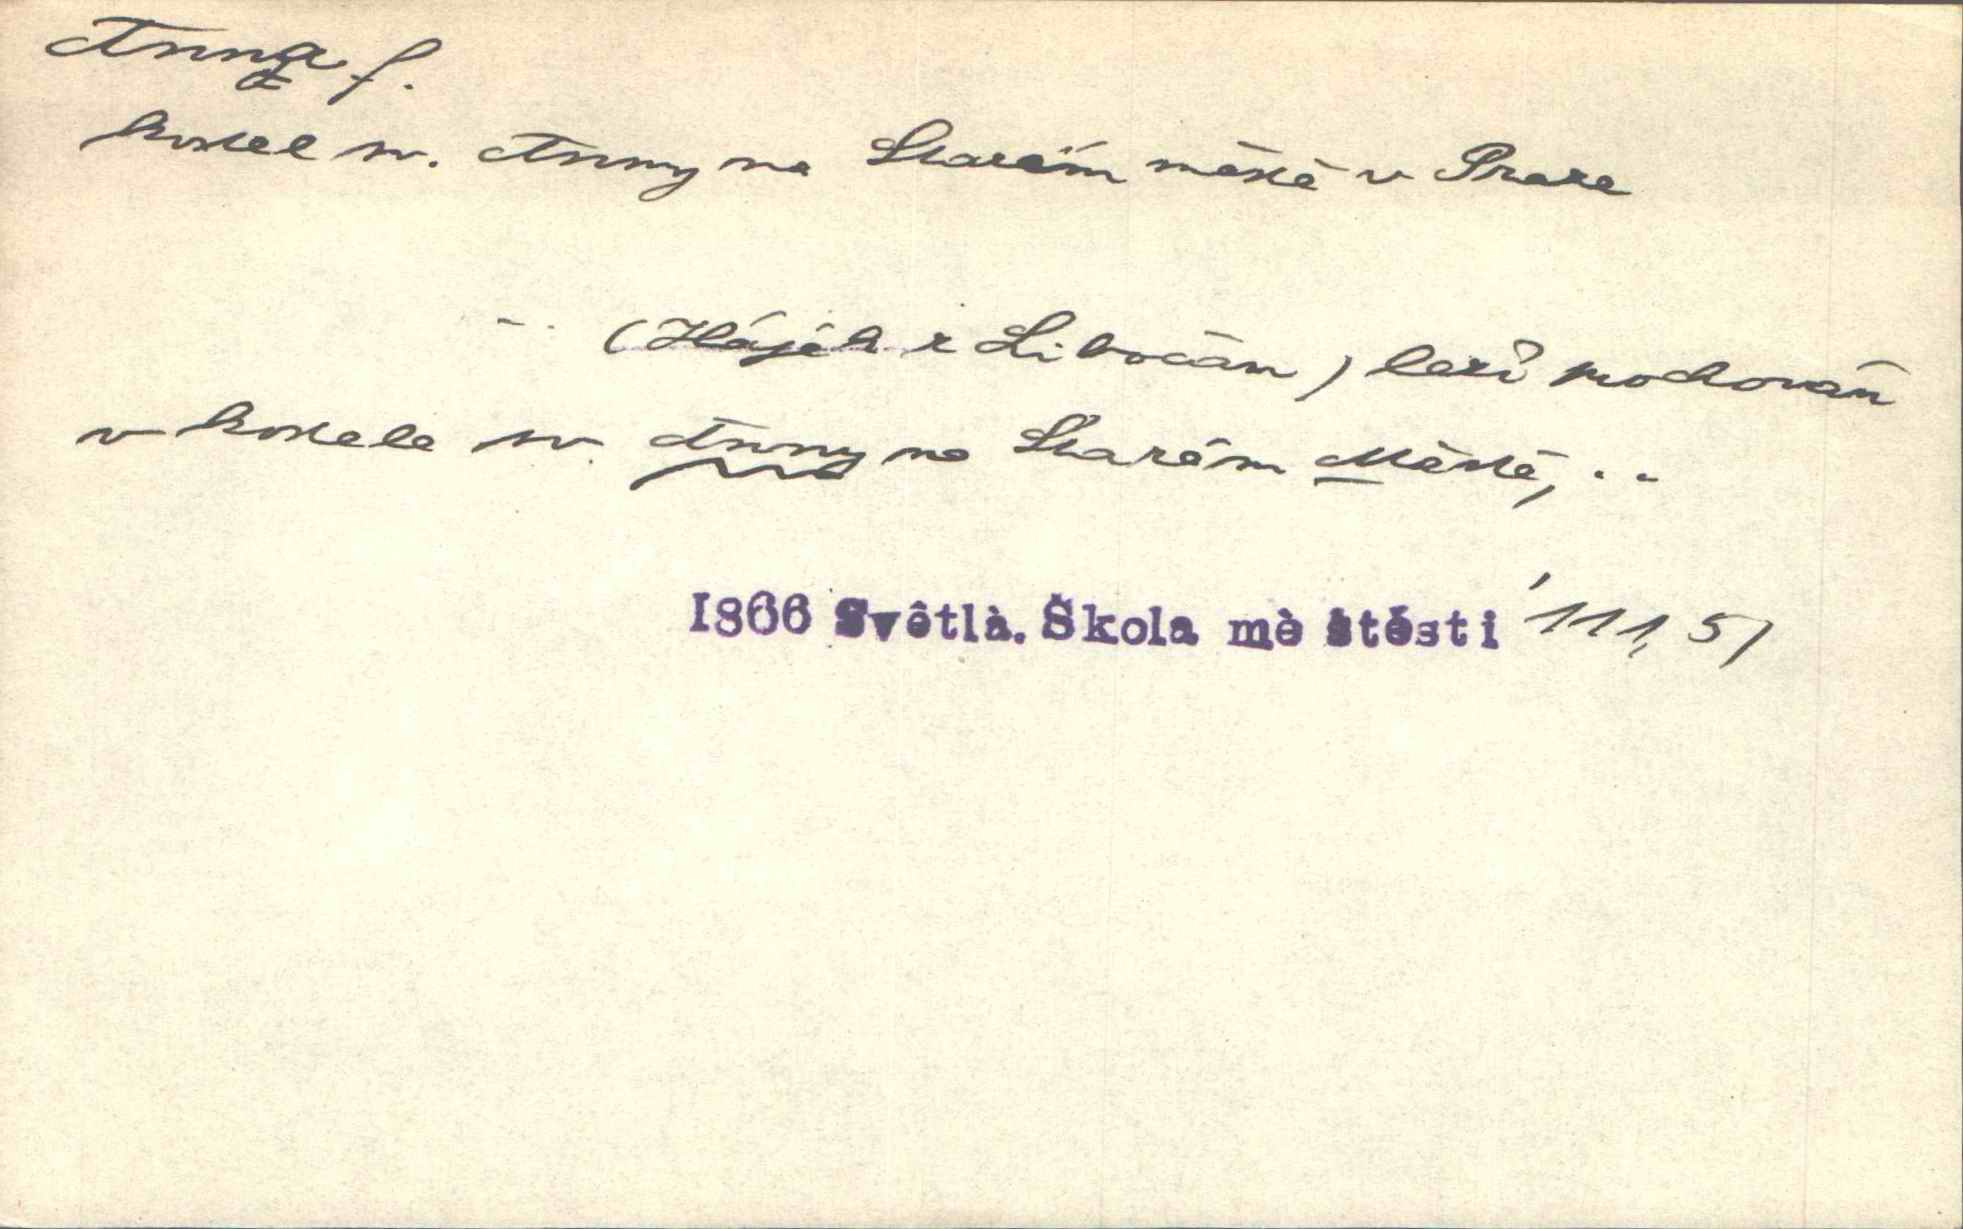 Anna f.
kostel sv. Anny na Starém městě v Praze
.. (Hájek z Libočan) leží pochován
v kostele sv. Anny na Starém Městě, ..
1866 Světlá. Škola mé štěstí 111, 51